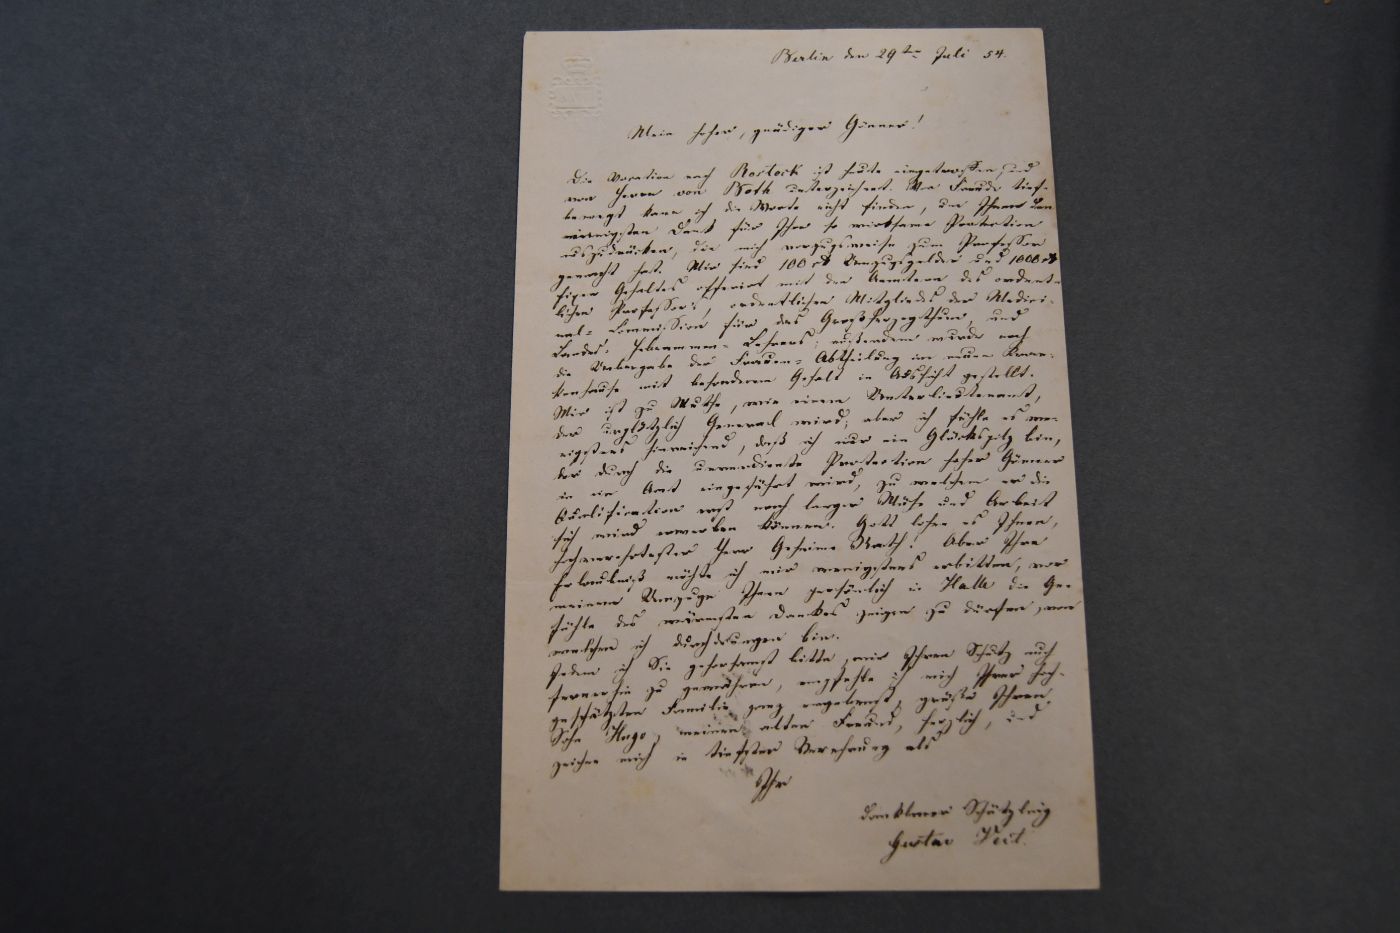 Berlin den 29ten Juli 54.
Mein hoher, gnädiger Gönner!
Die Vocation nach Rostock ist heute eingetroffen, und
von Herrn von Both unterzeichnet. Von Freude tief-
bewegt kann ich die Worte nicht finden, um Ihnen den
innigsten Dank für Ihre so wirksame Protection
auszudrücken, die mich vorzugsweise zum Professor
gemacht hat. Mir sind 100 rt Umzugsgelder und 1000 rt
fixen Gehaltes offerirt mit den Aemtern des ordent-
lichen Professors, ordentlichen Mitgliedes der Medici-
nal-Commission für das Großherzogthum, und
Landes-Hebammen-Lehrers; außerdem wurde noch
die Uebergabe der Frauen-Abtheilung im neuen Kran-
kenhause mit besonderem Gehalt in Aussicht gestellt.
Mir ist zu Muthe, wie einem Unterlieutenant,
der urplötzlich General wird; aber ich fühle es we-
nigstens hinreichend, daß ich nur ein Glückspilz bin,
der durch die unverdiente Protection hoher Gönner
in ein Amt eingeführt wird, zu welchem er die
Qualification erst nach langer Mühe und Arbeit
sich wird erwerben können. Gott lohne es Ihnen,
hochverehrtester Herr Geheime Rath! Aber Ihre
Erlaubniß möchte ich mir wenigstens erbitten, vor
meinem Umzuge Ihnen persönlich in Halle die Ge-
fühle des wärmsten Dankes zeigen zu dürfen, von
welchen ich durchdrungen bin.
Indem ich Sie gehorsamst bitte, mir Ihren Schutz auch
fernerhin zu gewähren, empfehle ich mich Ihrer hoch-
geschätzten Familie ganz ergebenst, grüße Ihren
Sohn Hugo, meinen alten Freund, herzlich, und
zeichne mich in tiefster Verehrung als
Ihr
dankbarer Schützling
Gustav Veit.